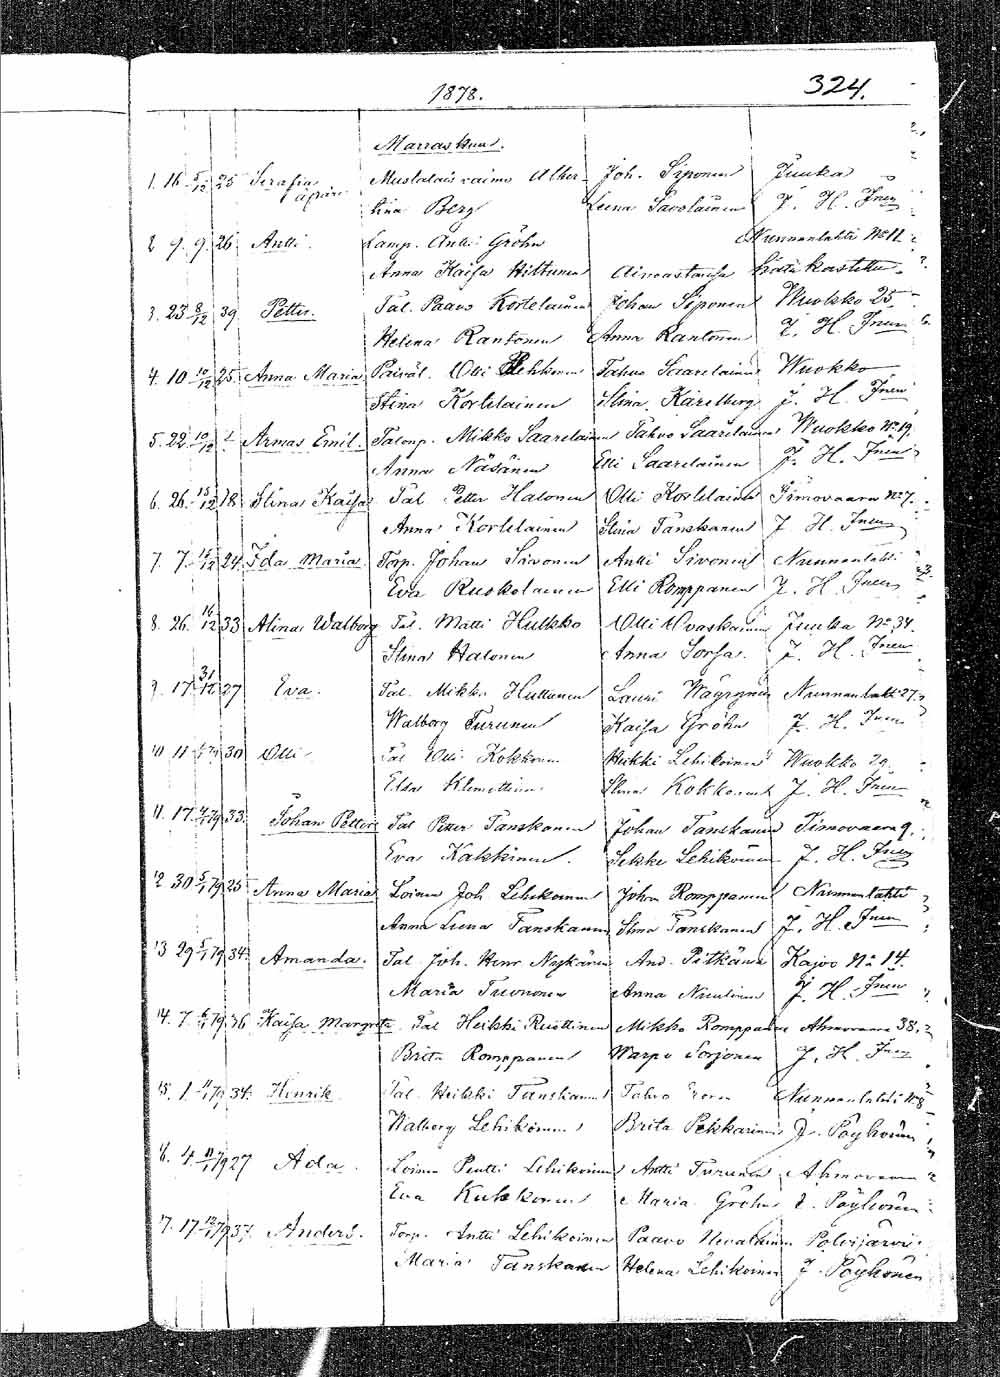 1878.
324.
Marraskuu.
1. 16 5/12 25 Serafia Mustalais vaimo Alber- Joh. Siponen Juuka
äpärä tiina Berg Leena Savolainen J. H. Inen
2 9. 9. 26 Antti. Kamp. Antti Gröhn Nunnanlahti No 11.
Anna Kaisa Hiltunen Ainoastansa hätäkastettu
3. 23 8/12 39 Petter. Tal. Paavo Kortelainen Johan Siponen Wuokko 25
Helena Rantonen Anna Rantonen J. H. Inen
4. 10 10/12 25 Anna Maria Olli Tahvo Saarelainen Wuokko
Stina Kortelainen Stina J. H. Inen
5. 22 10/12 Armas Emil. Talonp. Mikko Saarelainen Tahvo Saarelainen Wuokko No 19.
Anna Näsänen Elli Saarelainen J. H. Inen
6. 26. 15/12 18 Stina Kaisa Tal Petter Halonen Olli Kortelainen Timovaara No 7.
Anna Kortelainen Stina Tanskanen J. H. Inen
7. 7. 24. Ida Maria Torp. Johan Sivonen Antti Sivonen Nunnanlahti
Eva Ruskolainen Elli Romppanen J. H. Inen
8. 26. 16/12 33 Alina Walborg Tal. Matti Hukko Olli Juuka No 34.
Stina Halonen Anna Sorsa. J. H. Inen
9. 17 31/12 27 Eva. Tal. Mikko Huttunen Lauri Wäyrynen Nunnanlahti 27.
Walborg Turunen Kaisa Gröhn J. H. Inen
10 11 30 Olli Tal Olli Kokkonen Heikki Lehikoinen Wuokko 29.
Elsa Klemettinen Stina Kokkonen J. H. Inen
11. 17 4/1 79 33. Johan Petter Tal Petter Tanskanen Johan Tanskanen Timovaara 9.
Eva Kakkinen. Lehikoinen J. H. Inen
12 30 5/1 79 25 Anna Maria Loinen Joh Lehikoinen Johan Romppanen Nunnanlahti
Anna Leena Tanskanen Stina Tanskanen J. H. Inen
13 29 5/1 79 34. Amanda. Tal. Joh. Henr Nykänen And. Pitkänen Kajoo No 14.
Maria Tuononen Anna Nuutinen J. H. Inen
14. 7. 6/1 79 36 Kaisa Margreta Tal Heikki Ruottinen Mikko Romppanen Ahmovaara 38.
Brita Romppanen Warpo Sorjonen J. H. Inen
15. 1. 11/1 79 34. Henrik Tal. Heikki Tanskanen Tahvo Nunnanlahti No 8
Walborg Lehikoinen Brita Pekkarinen J. Pöyhönen
16. 4. 11/1 79 27 Ada. Loinen Pentti Lehikoinen Antti Turunen Ahmovaara
Eva Kukkonen Maria Gröhn J. Pöyhönen
17. 17 12/1 79 37. Anders. Torp. Antti Lehikoinen Paavo Nevalainen Polvijärvi.
Maria Tanskanen Helena Lehikoinen J. Pöyhönen